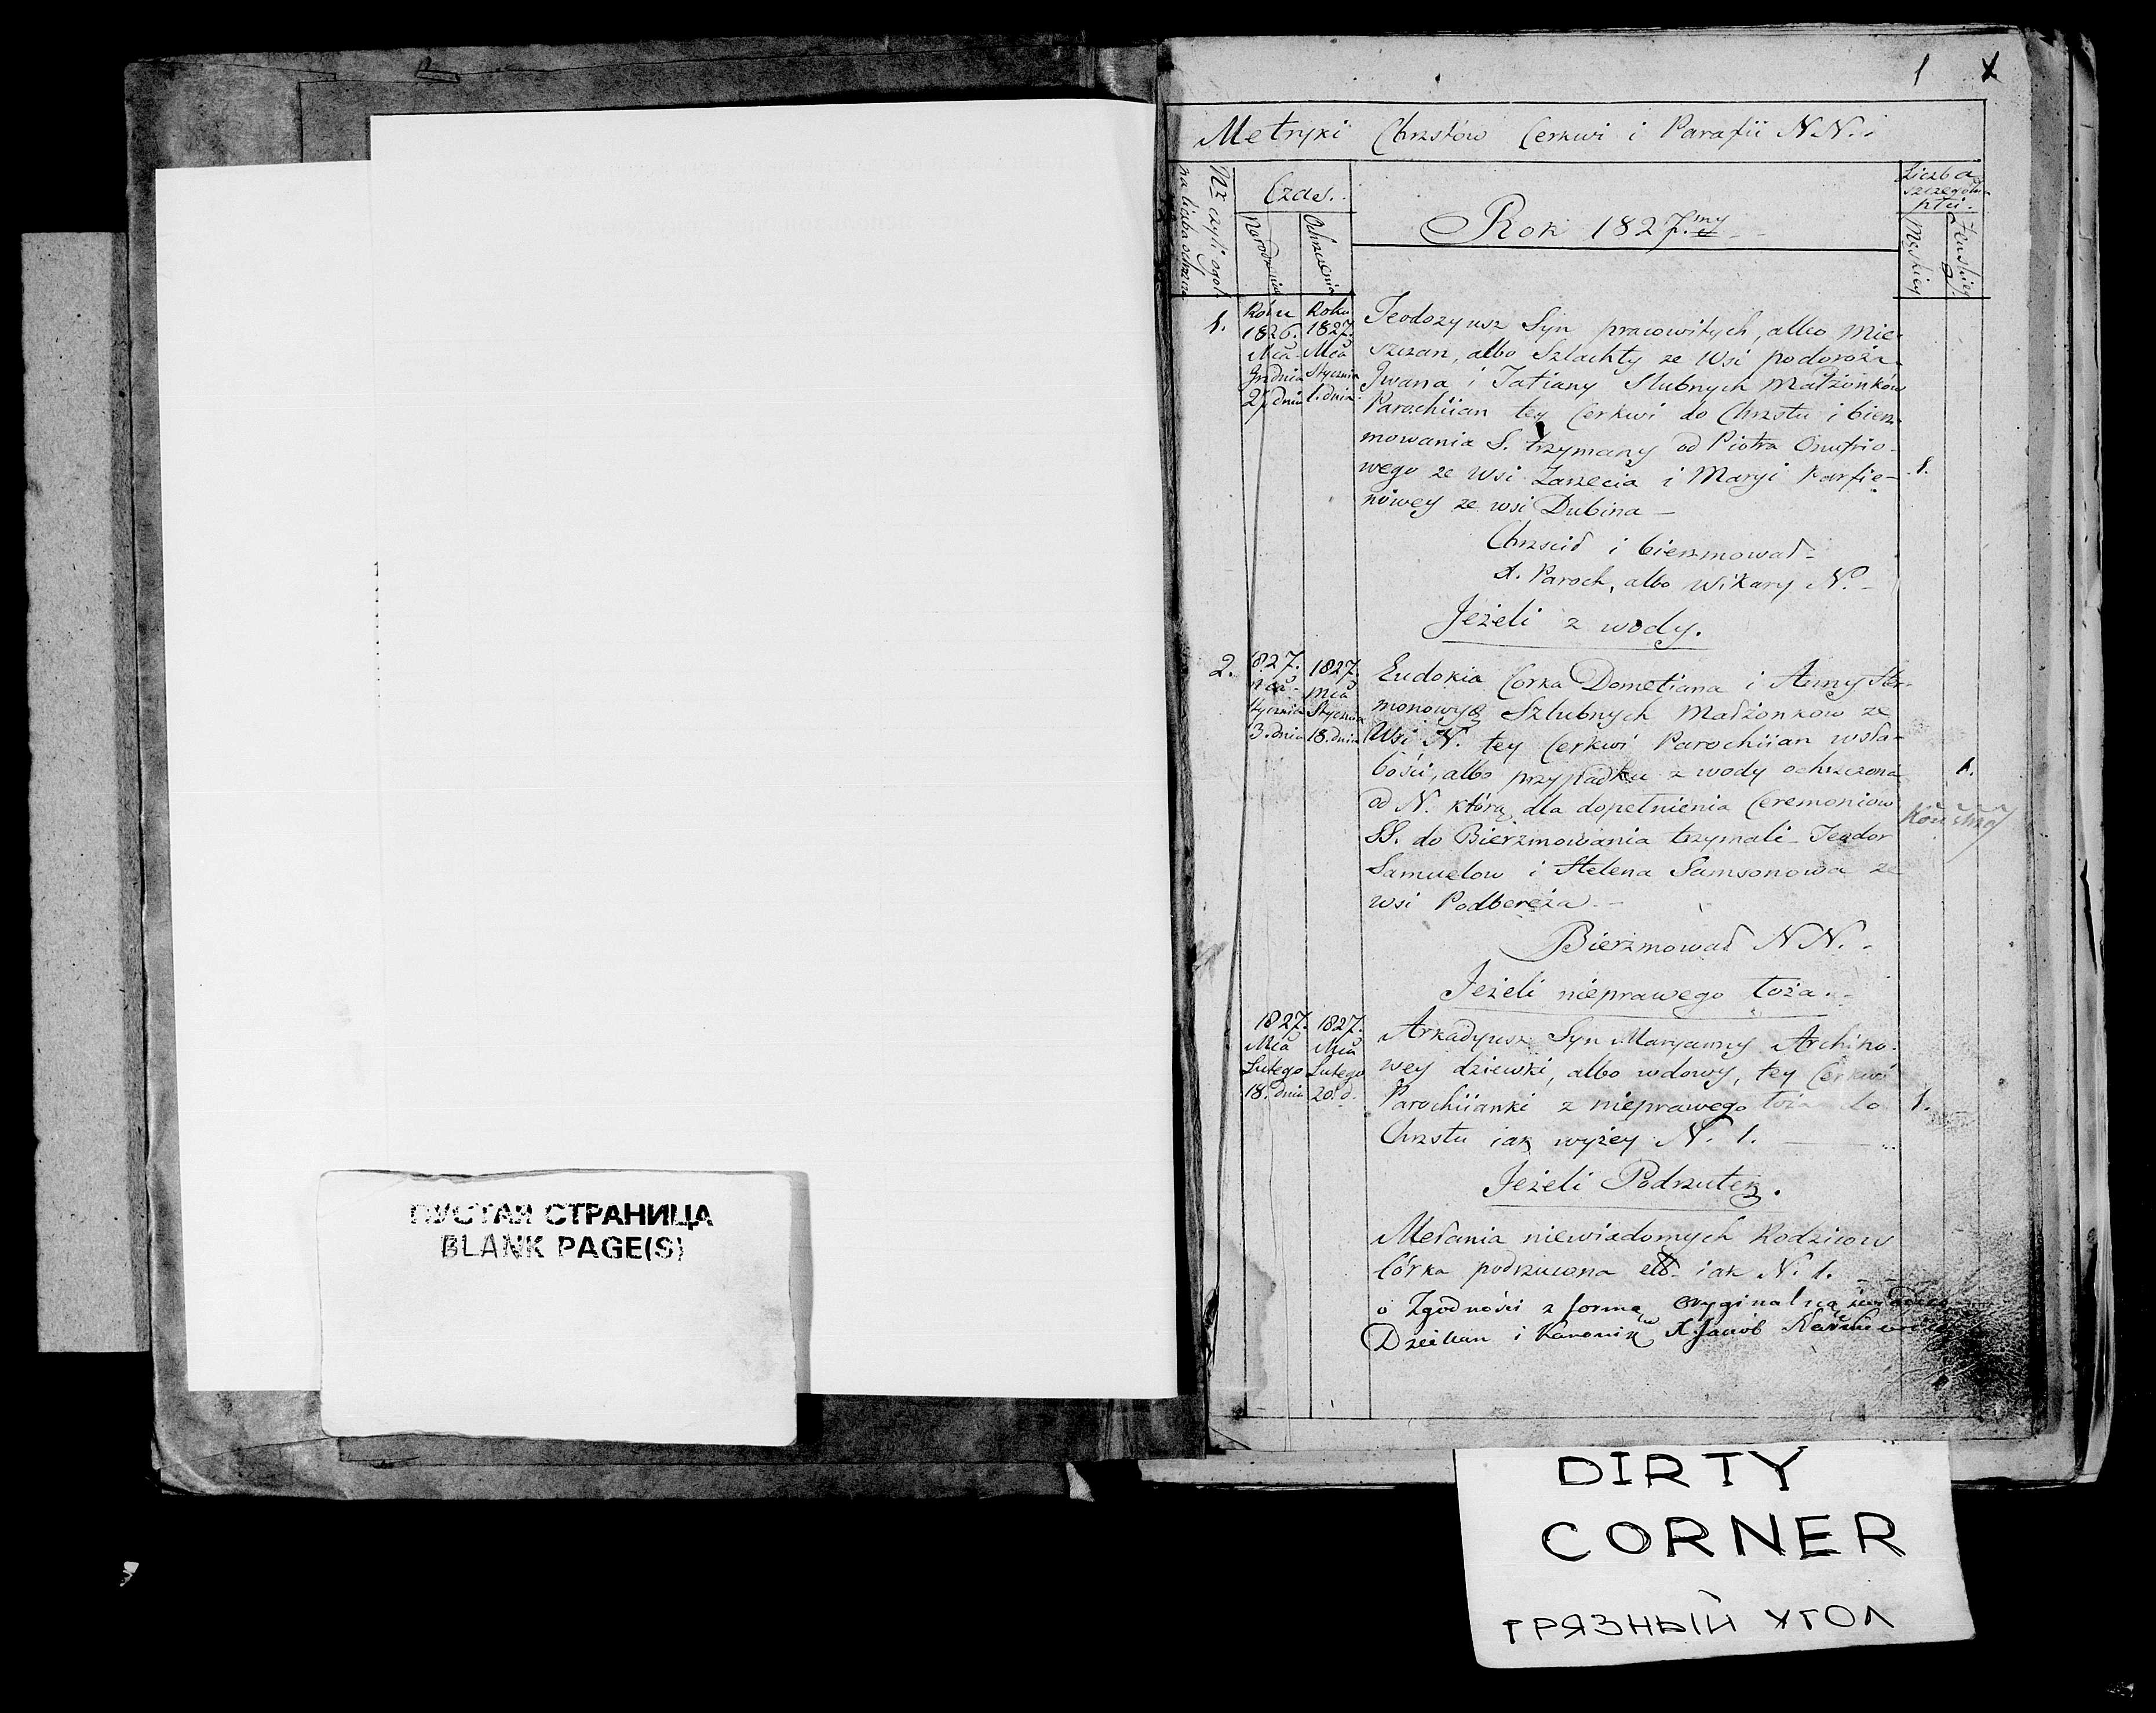 ПУСТАЯ СТРАНИЦА
BLANK PAGE(S)
1
Metryki Chrztów Cerkwi i Parafii NN.
Nr czyli ogol-
na liczba
Czas.
Narodzenia
Ochrzczenia
Rok 1827.my
Liczba
szczególn.
płci.
Męskiey
Żeńskiey
1.
Roku
1826.
Mca
Grudnia
27 dnia
Roku
1827.
Mca
Stycznia
1. dnia
Teodozyusz Syn pracowitych, albo Mie-
szczan, albo Szlachty ze Wsi podoroża
Iwana i Tatiany Slubnych Małżonków
Parochiian tey Cerkwi do Chrztu i bierz-
mowania S. trzymany od Piotra Onufrio-
wego ze wsi Zarzecia i Maryi Parfie-
nowey ze wsi Dubina
1.
Chrzcił i bierzmował
X. Paroch, albo Wikary N.
Jeżeli z wody.
2.
1827.
Mca
Stycznia
3. dnia
1827.
Mca
Stycznia
18. dnia
Eudokia Corka Dometiana i Anny
Szlubnych Małżonkow ze
Wsi N. tey Cerkwi Parochiian w sła-
bości, albo przypadku z wody ochrzczona
od N. którą dla dopełnienia Ceremoniow
SS. do Bierzmowania trzymali Teodor
Samuelow i Helena Samsonowa ze
wsi Podbereża
1.
Bierzmował NN.
Jeżeli nieprawego łoża.
1827.
Mca
Lutego
18. dnia
1827.
Mca
Lutego
20. d.
Arkadyusz Syn Maryanny Archipo-
wey dziewki, albo wdowy, tey Cerkwi
Parochiianki z nieprawego łoża do
Chrztu iak wyżey N. 1.
1.
Jeżeli Podrzutek.
Melania niewiadomych Rodzicow
Córka podrzucona etc. iak N. 1.
o Zgodności z formą oryginalną
Dziekan i Kanonik X Jakób
DIRTY
CORNER
ГРЯЗНЫЙ УГОЛ